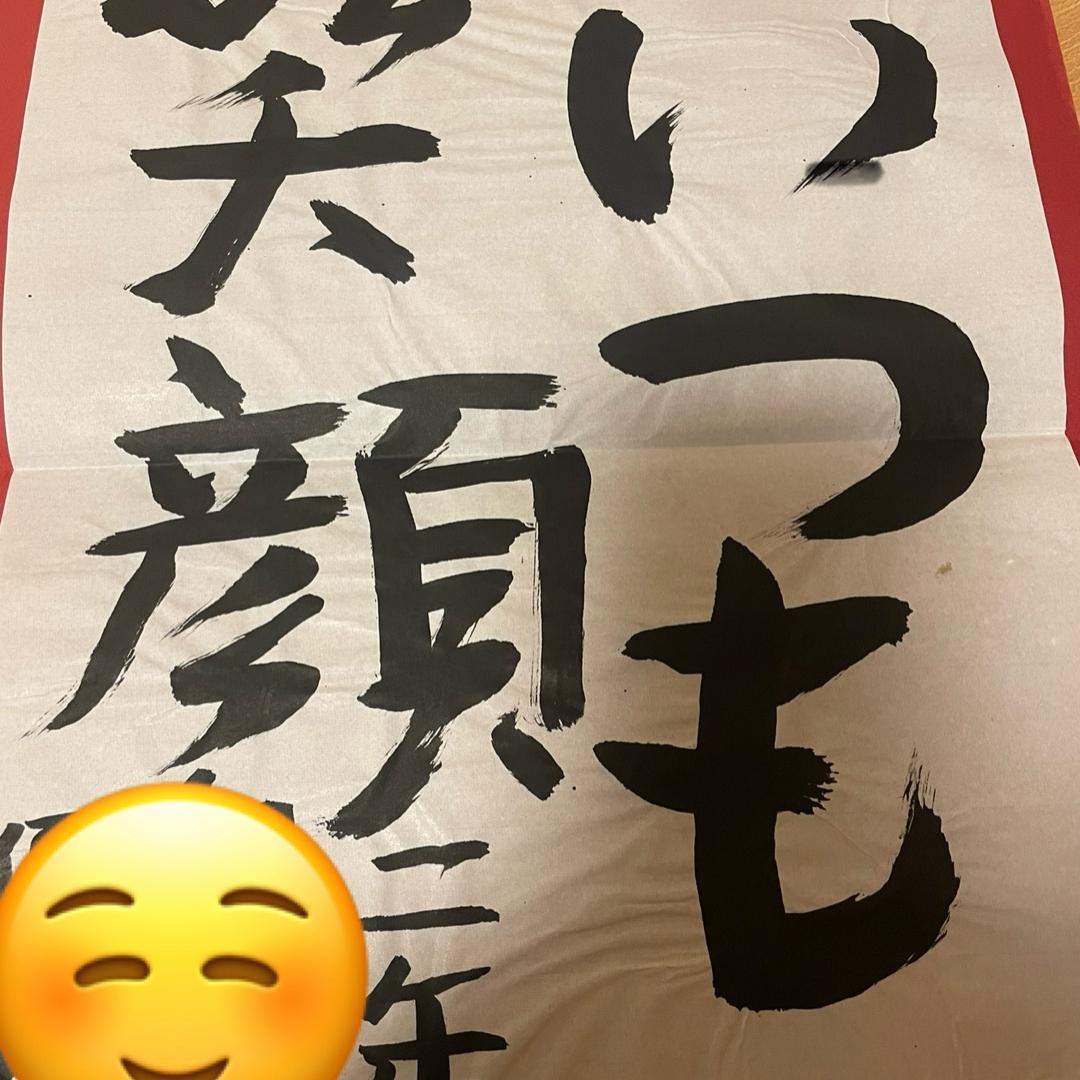 いつも
笑顔
二年